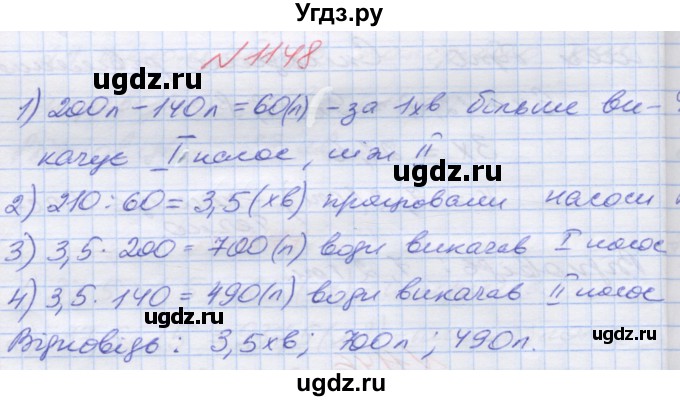 Угдз.ру
N 1148
ugdz.ru
ugdz.ru
1) 200л - 140л = 60(л) - за 1хв більше ви-
качує I насос, ніж II
ugdz.ru
2) 210 : 60 = 3,5 (хв) працювали насоси
ugdz.ru
3) 3,5 · 200 = 700(л) води викачав I насос
4) 3,5 · 140 = 490(л) води викачав II насос
ugdz.ru
ugdz.ru
Відповідь : 3,5хв ; 700л ; 490л.
ugdz.ru